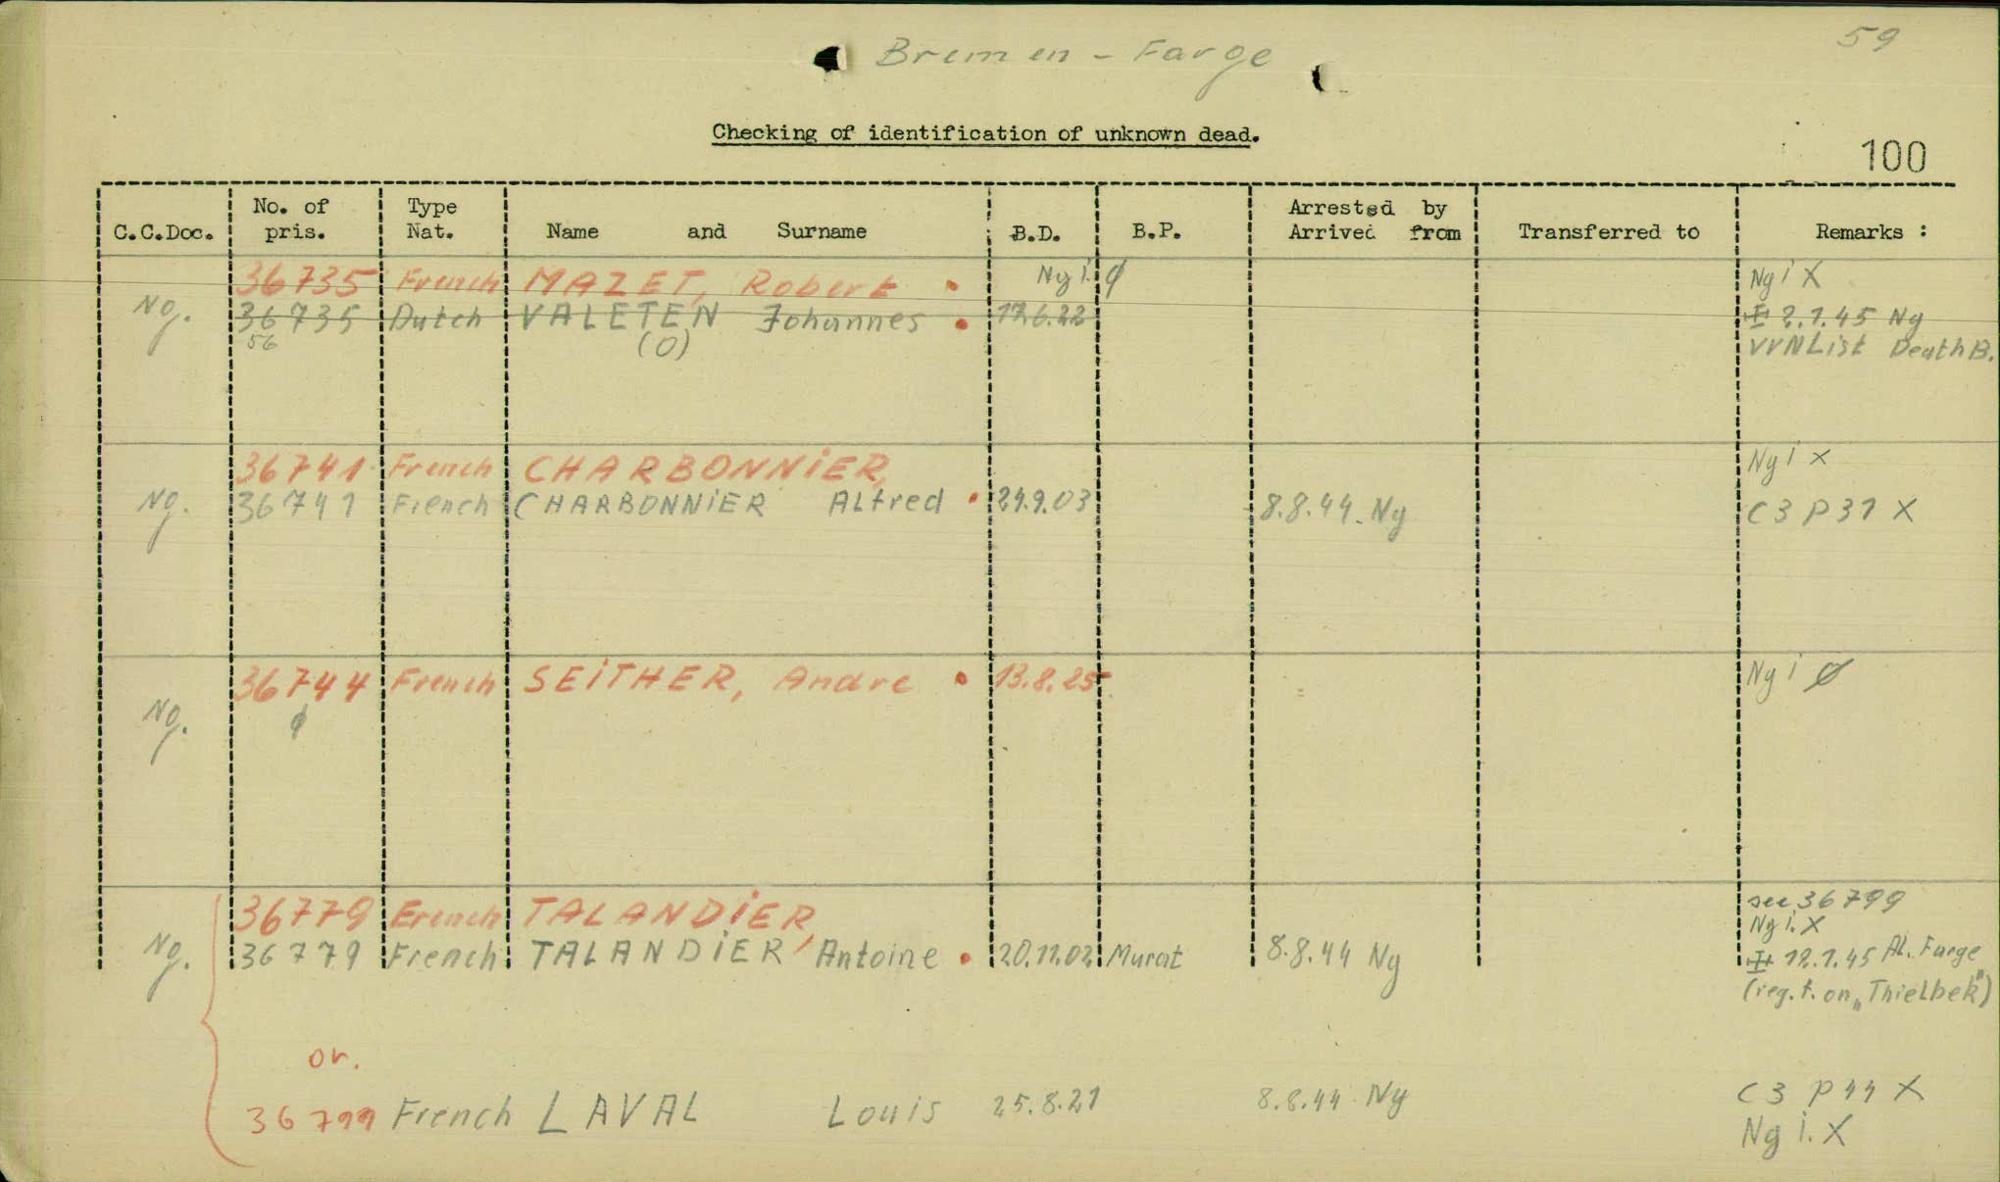 59
Bremen - Farge
Checking of identification of unknown dead.
100
C.C.Doc. No. of pris. Type Nat. Name and Surname B.D. B.P. Arrested by Arrived from Transferred to Remarks :
36735 French MAZET, Robert • Ng i. ϕ Ng i X
Ng. 36735 Dutch VALETEN Johannes • 17.6.22 2.1.45 Ng
56 (O) VVN List Death B.
36741 French CHARBONNiER, Ng i X
Ng. 36741 French CHARBONNiER Alfred • 8.8.44. Ng C3 P31 X
36744 French SEiTHER, Andre • 13.8.25 Ng i ϕ
Ng. ϕ
36779 French TALANDiER, see 36799
Ng i. X
Ng. 36779 French TALANDiER, Antoine • 20.11.02 Murat 8.8.44 Ng 12.1.45 Al. Farge
(reg. f. on „Thielbek")
or.
36799 French LAVAL Louis 25.8.21 8.8.44 Ng C3 P44 X
Ng i. X